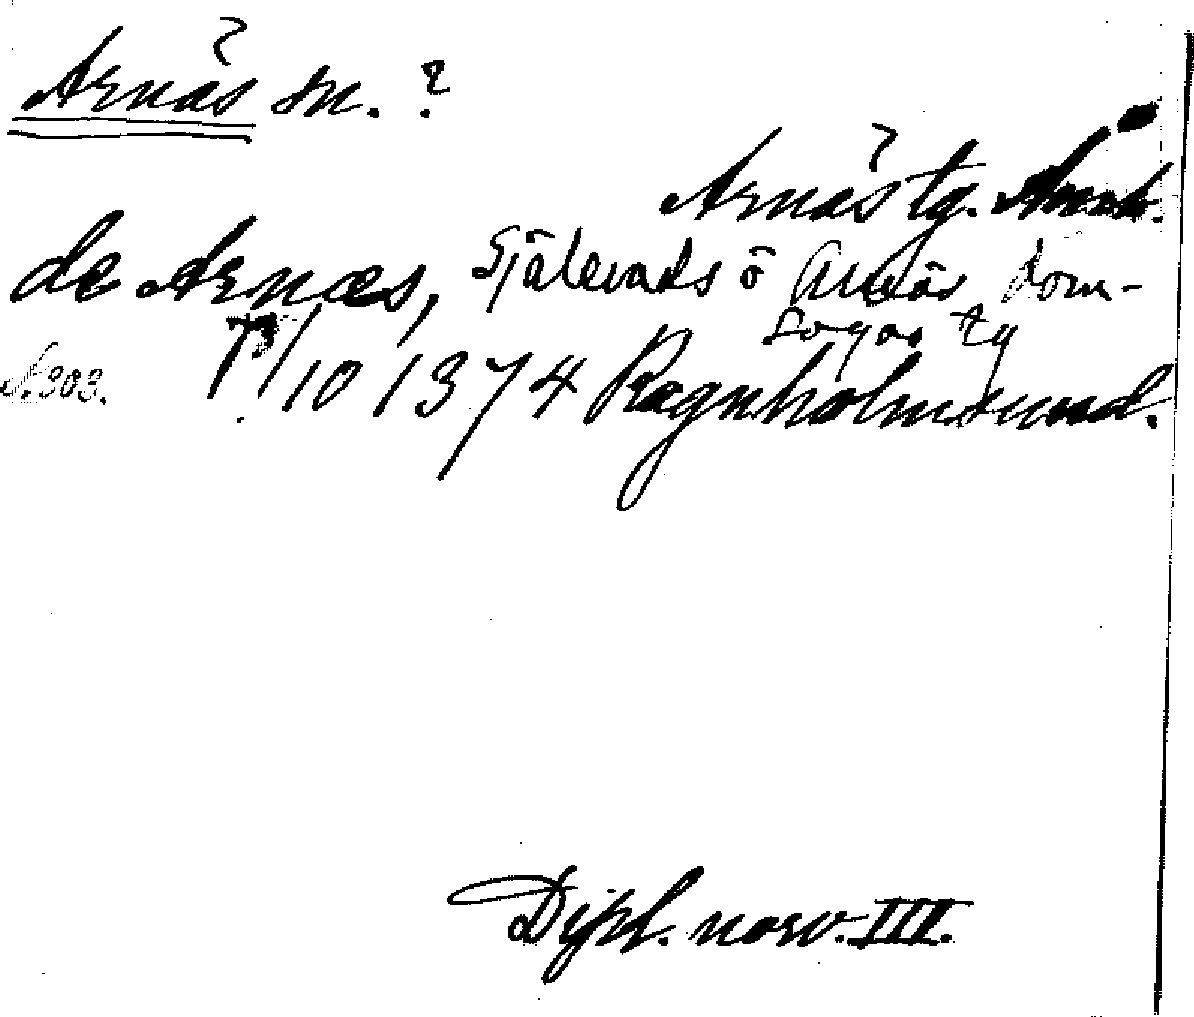 ?
Arnäs sn. ?
? Arnäs tg.
de Arnæs, Själevads ö Arnäs dom-
sagas tg
N. 303. /10 1374 Ragnholmsund.
Dipl. norv. III.